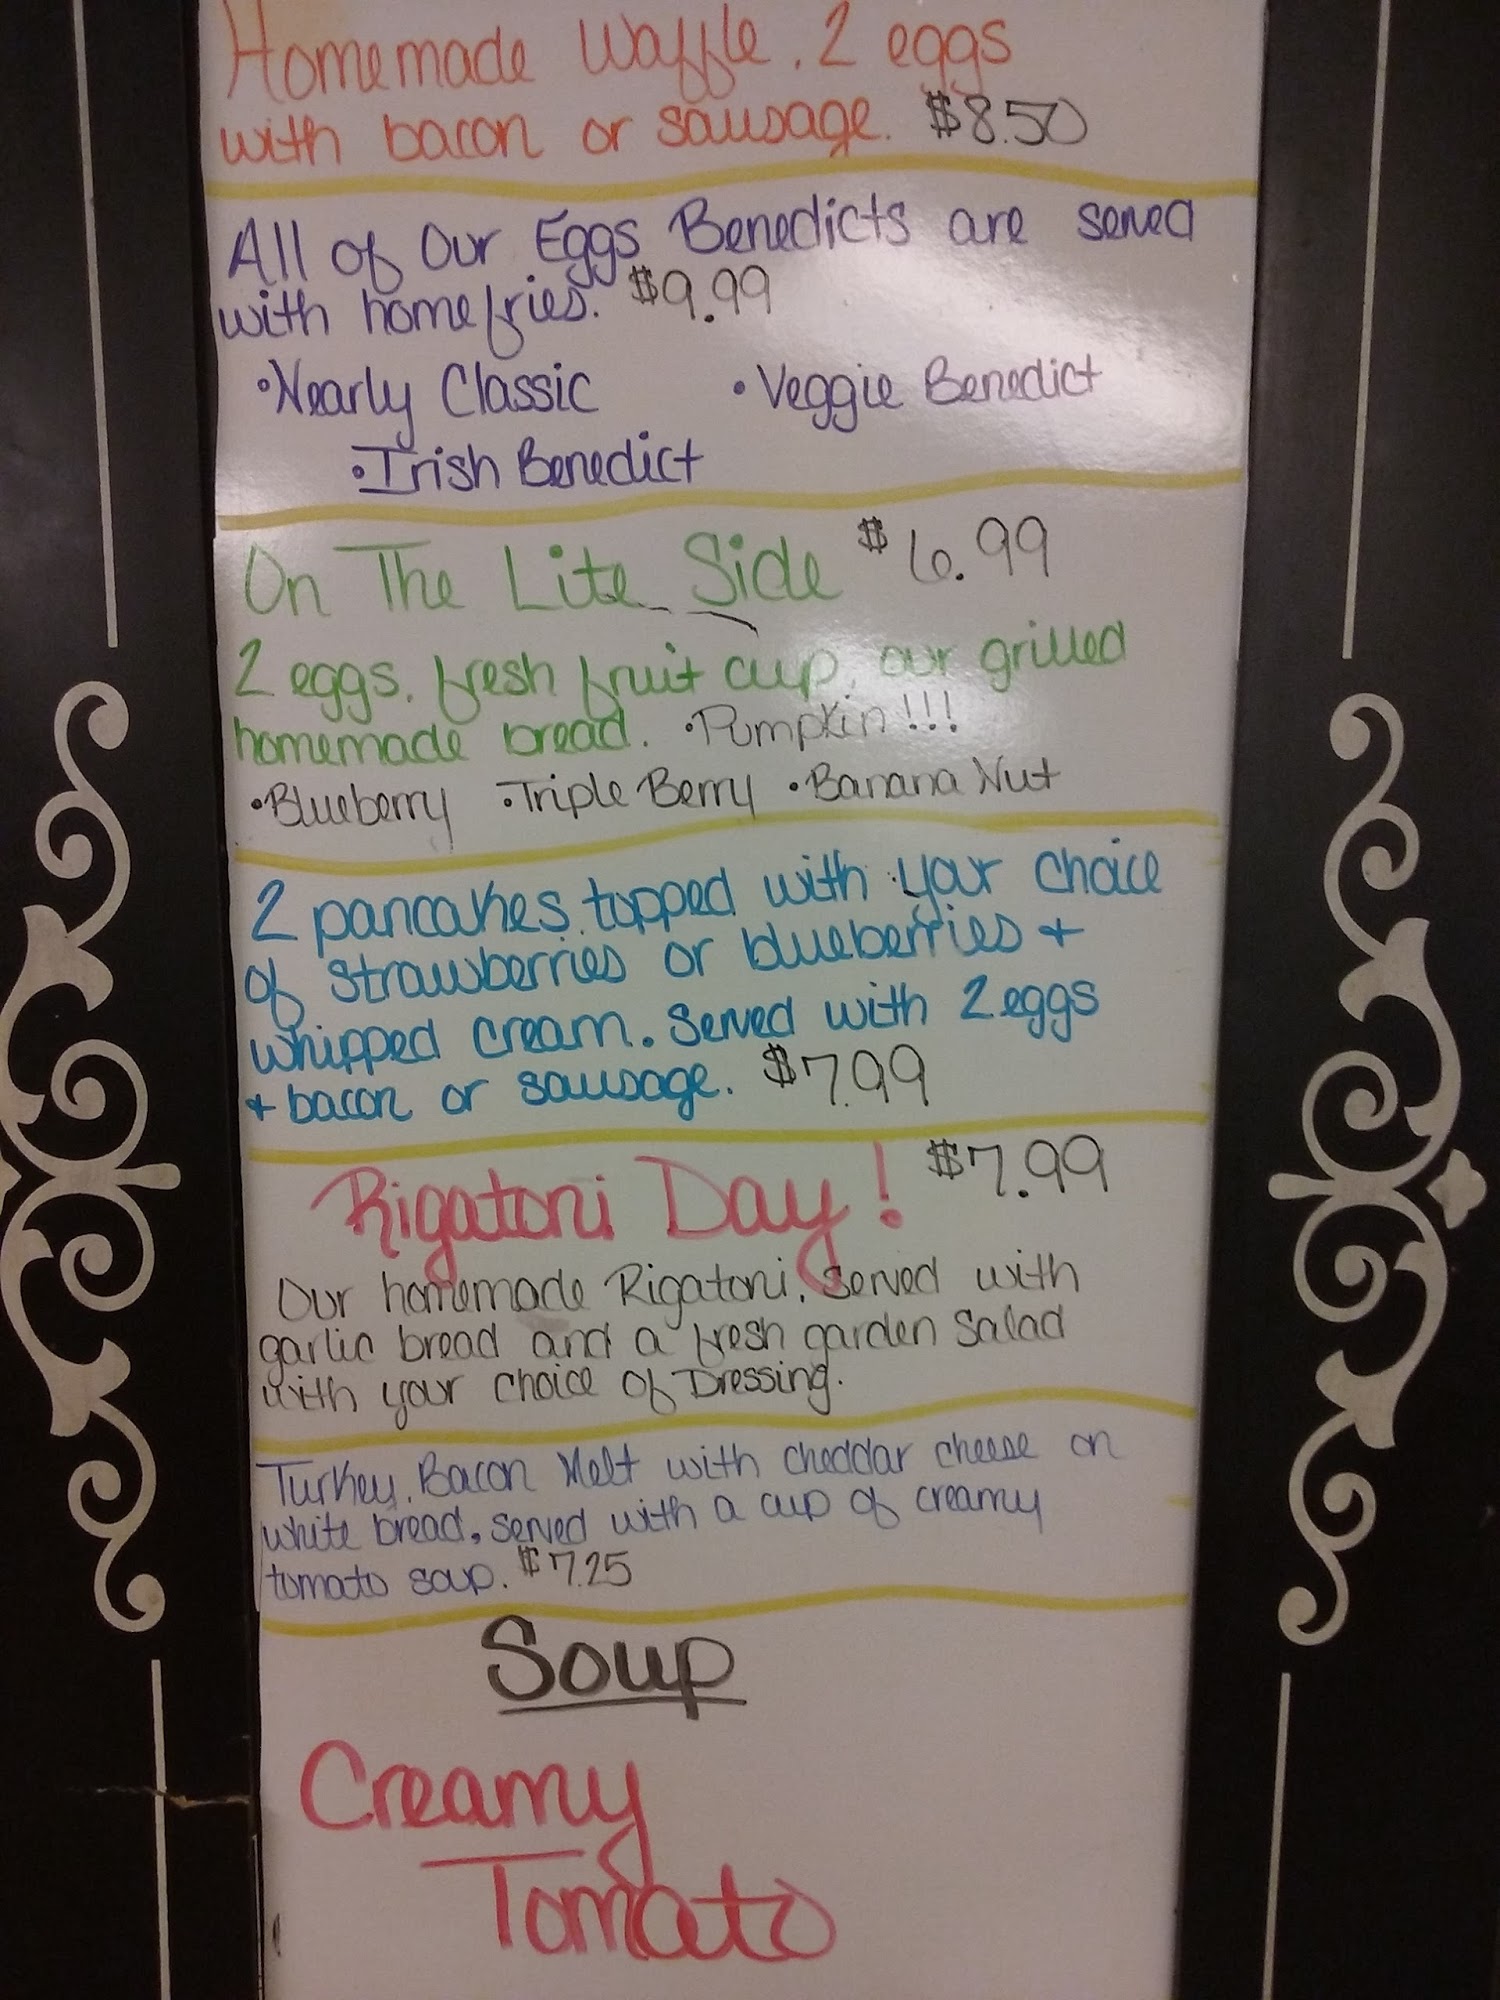 Homemade Waffle. 2 eggs
with bacon or sausage. $8.50
All of Our Eggs Benedicts are served
with homefries. $9.99
•Nearly Classic •Veggie Benedict
•Irish Benedict
On The Lite Side $6.99
2 eggs. fresh fruit cup, our grilled
homemade bread. •Pumpkin!!!
•Blueberry •Triple Berry •Banana Nut
2 pancakes topped with your choice
of strawberries or blueberries +
whipped cream. Served with 2 eggs
+ bacon or sausage. $7.99
Rigatoni Day! $7.99
Our homemade Rigatoni, served with
garlic bread and a fresh garden Salad
with your choice of Dressing.
Turkey. Bacon Melt with cheddar cheese on
white bread. served with a cup of creamy
tomato soup. $7.25
Soup
Creamy
Tomato